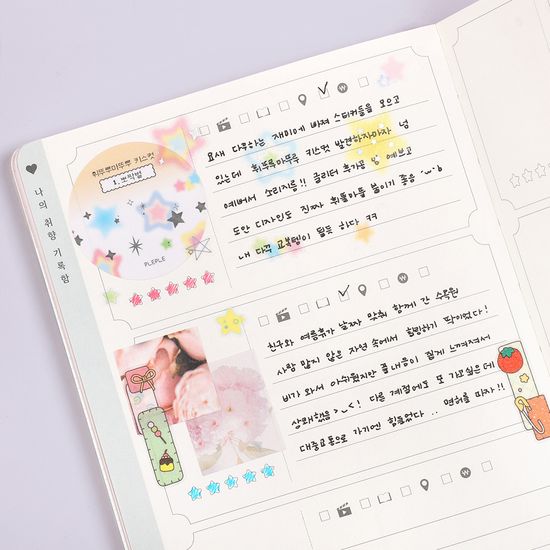 나의 취향 기록함
취뚜루마뚜루 키스컷
1. 뽀짝별
PLEPLE
요새 다꾸하는 재미에 빠져 스티커들을 모으고
있는데 취뚜루마뚜루 키스컷 발견하자마자 넘
예뻐서 소리지름!! 글리터 후가공 넘 예쁘고
도안 디자인도 진짜 휘뚤마뚤 붙이기 좋음
내 다꾸 교복템이 될듯 하다 ㅋㅋ
친구와 여름휴가 날짜 맞춰 함께 간 수목원
사람 많지 않은 자연 속에서 힐링하기 딱이었다!
비가 와서 아쉬웠지만 풀내음이 짙게 느껴져서
상쾌했음 다른 계절에도 또 가고싶은데
대중교통으로 가기엔 힘들었다.. 면허를 따자!!